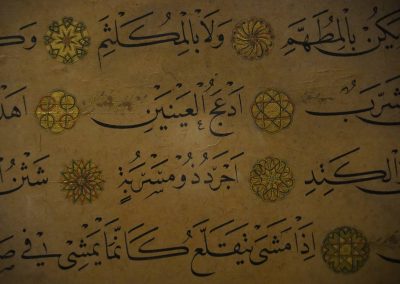 يَكُنْ بِالْمُطَهَّمِ وَلَا بِالْمُكَلْثَمِ وَكَ
شْرَبٌ اَدْعَجُ الْعَيْنَيْنِ اَهْدَ
الْكَتِدِ اَجْرَدُ ذُو مَسْرُبَةٍ شَثْنُ ا
اِذَا مَشٰى تَقَلَّعَ كَاَنَّمَا يَمْشِي فِي صَ